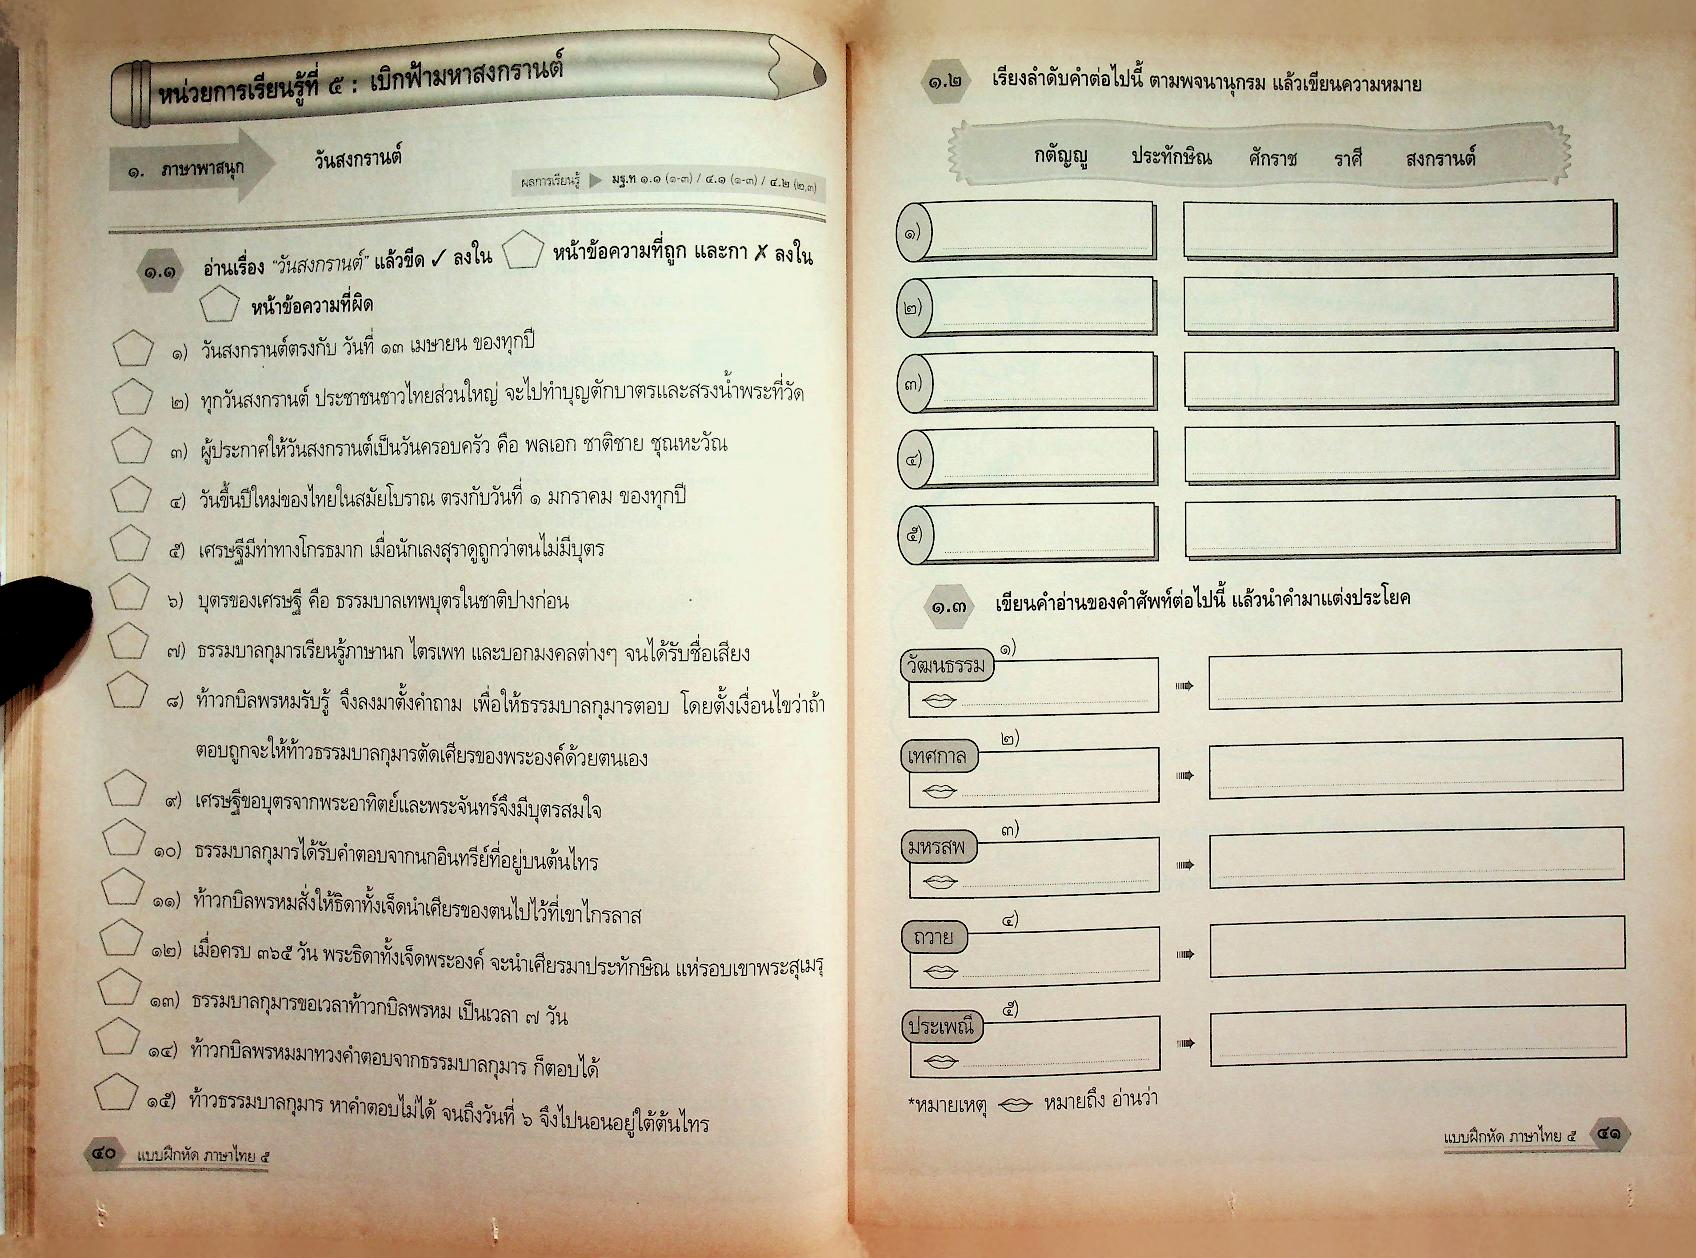 หน่วยการเรียนรู้ที่ ๕ : เบิกฟ้ามหาสงกรานต์
๑. ภาษาพาสนุก
วันสงกรานต์
ผลการเรียนรู้ ▶ มฐ.ท ๑.๑ (๑-๓) / ๔.๑ (๑-๓) / ๔.๒ (๒,๓)
๑.๑ อ่านเรื่อง "วันสงกรานต์" แล้วขีด ✓ ลงใน หน้าข้อความที่ถูก และกา ✗ ลงใน
หน้าข้อความที่ผิด
๑) วันสงกรานต์ตรงกับ วันที่ ๑๓ เมษายน ของทุกปี
๒) ทุกวันสงกรานต์ ประชาชนชาวไทยส่วนใหญ่ จะไปทำบุญตักบาตรและสรงน้ำพระที่วัด
๓) ผู้ประกาศให้วันสงกรานต์เป็นวันครอบครัว คือ พลเอก ชาติชาย ชุณหะวัณ
๔) วันขึ้นปีใหม่ของไทยในสมัยโบราณ ตรงกับวันที่ ๑ มกราคม ของทุกปี
๕) เศรษฐีมีท่าทางโกรธมาก เมื่อนักเลงสุราดูถูกว่าตนไม่มีบุตร
๖) บุตรของเศรษฐี คือ ธรรมบาลเทพบุตรในชาติปางก่อน
๗) ธรรมบาลกุมารเรียนรู้ภาษานก ไตรเพท และบอกมงคลต่างๆ จนได้รับชื่อเสียง
๘) ท้าวกบิลพรหมรับรู้ จึงลงมาตั้งคำถาม เพื่อให้ธรรมบาลกุมารตอบ โดยตั้งเงื่อนไขว่าถ้า
ตอบถูกจะให้ท้าวธรรมบาลกุมารตัดเศียรของพระองค์ด้วยตนเอง
๙) เศรษฐีขอบุตรจากพระอาทิตย์และพระจันทร์จึงมีบุตรสมใจ
๑๐) ธรรมบาลกุมารได้รับคำตอบจากนกอินทรีย์ที่อยู่บนต้นไทร
๑๑) ท้าวกบิลพรหมสั่งให้ธิดาทั้งเจ็ดนำเศียรของตนไปไว้ที่เขาไกรลาส
๑๒) เมื่อครบ ๓๖๕ วัน พระธิดาทั้งเจ็ดพระองค์ จะนำเศียรมาประทักษิณ แห่รอบเขาพระสุเมรุ
๑๓) ธรรมบาลกุมารขอเวลาท้าวกบิลพรหม เป็นเวลา ๗ วัน
๑๔) ท้าวกบิลพรหมมาทวงคำตอบจากธรรมบาลกุมาร ก็ตอบได้
๑๕) ท้าวธรรมบาลกุมาร หาคำตอบไม่ได้ จนถึงวันที่ ๖ จึงไปนอนอยู่ใต้ต้นไทร
๔๐ แบบฝึกหัด ภาษาไทย ๕
๑.๒ เรียงลำดับคำต่อไปนี้ ตามพจนานุกรม แล้วเขียนความหมาย
กตัญญู ประทักษิณ ศักราช ราศี สงกรานต์
๑)
๒)
๓)
๔)
๕)
๑.๓ เขียนคำอ่านของคำศัพท์ต่อไปนี้ แล้วนำคำมาแต่งประโยค
๑)
วัฒนธรรม
๒)
เทศกาล
๓)
มหรสพ
๔)
ถวาย
๕)
ประเพณี
*หมายเหตุ หมายถึง อ่านว่า
แบบฝึกหัด ภาษาไทย ๕ ๔๑